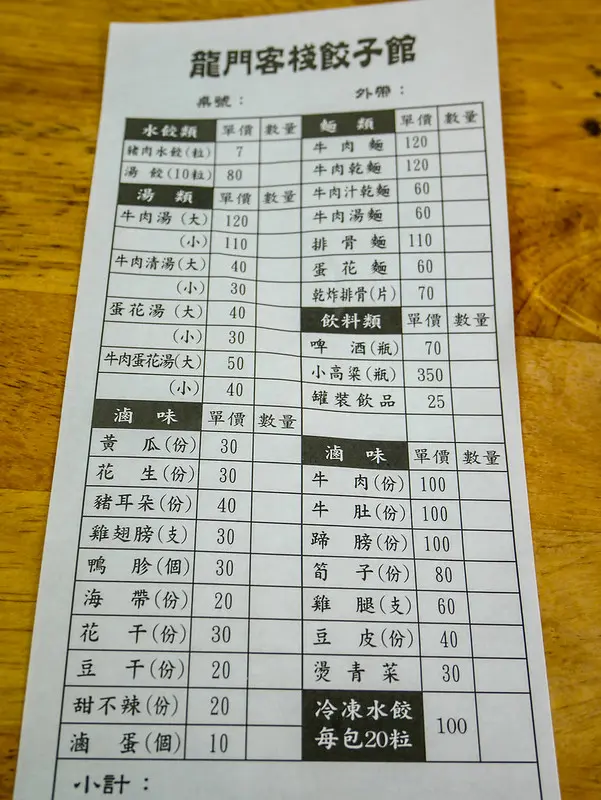 龍門客棧餃子館
桌號：
外帶：
水餃類 單價 數量
豬肉水餃(粒) 7
湯餃(10粒) 80
湯類 單價 數量
牛肉湯(大) 120
(小) 110
牛肉清湯(大) 40
(小) 30
蛋花湯(大) 40
(小) 30
牛肉蛋花湯(大) 50
(小) 40
滷味 單價 數量
黃瓜(份) 30
花生(份) 30
豬耳朵(份) 40
雞翅膀(支) 30
鴨胗(個) 30
海帶(份) 20
花干(份) 30
豆干(份) 20
甜不辣(份) 20
滷蛋(個) 10
麵類 單價 數量
牛肉麵 120
牛肉乾麵 120
牛肉汁乾麵 60
牛肉湯麵 60
排骨麵 110
蛋花麵 60
乾炸排骨(片) 70
飲料類 單價 數量
啤酒(瓶) 70
小高粱(瓶) 350
罐裝飲品 25
滷味 單價 數量
牛肉(份) 100
牛肚(份) 100
蹄膀(份) 100
筍子(份) 80
雞腿(支) 60
豆皮(份) 40
燙青菜 30
冷凍水餃
每包20粒 100
小計：